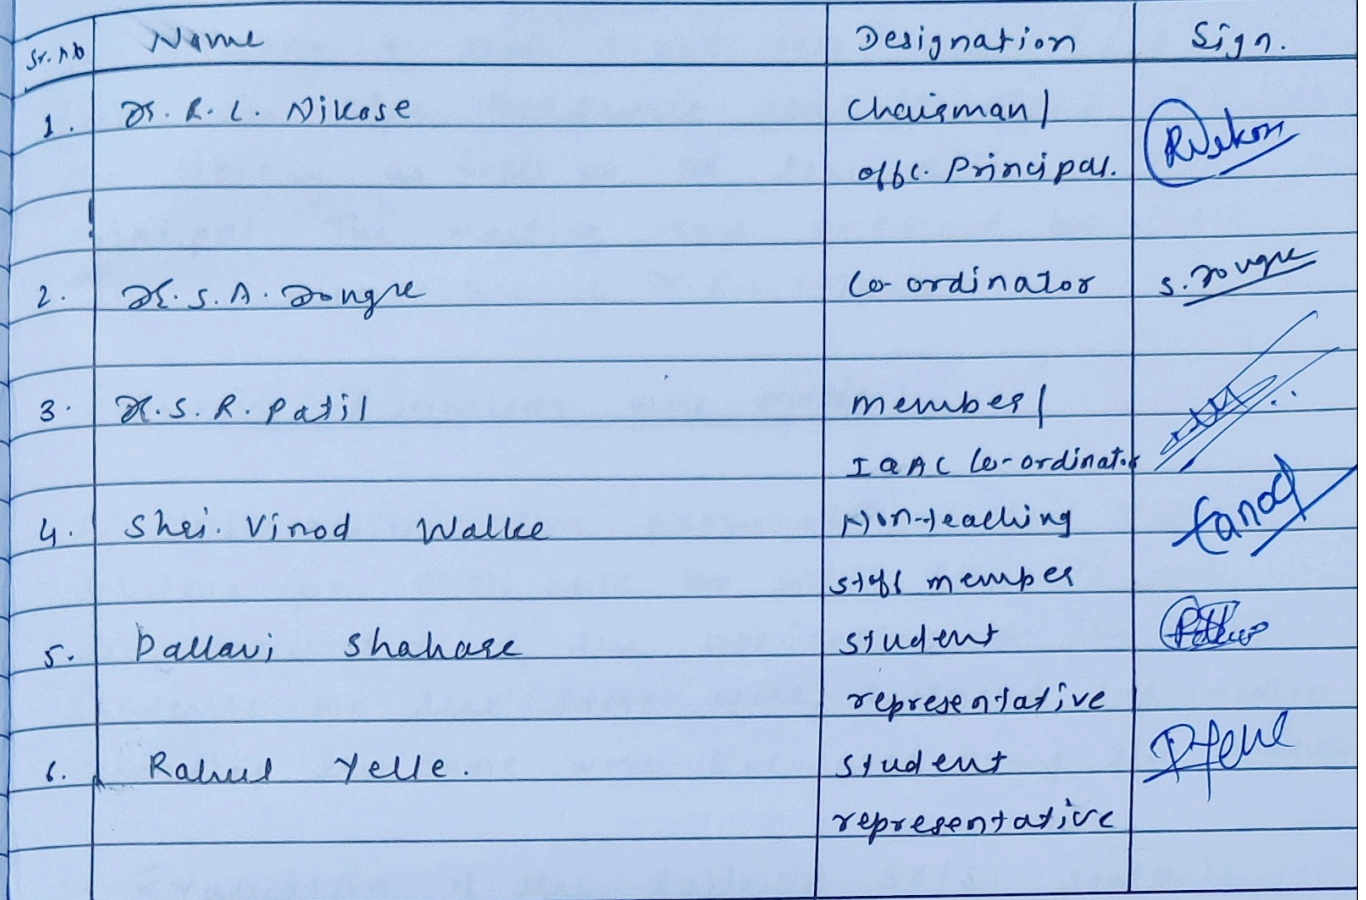 Sr. No Name Designation Sign.
1. Dr. R. L. Nikose Chairman/
offc. Principal.
2. Dr. S. A. Dongre Co-ordinator S. Dongre
3. Dr. S. R. Patil member/
IQAC Co-ordinator
4. Shri. Vinod Walke Non-teaching
staff member
5. Pallavi Shahare student
representative
6. Rahul Yelle. student
representative